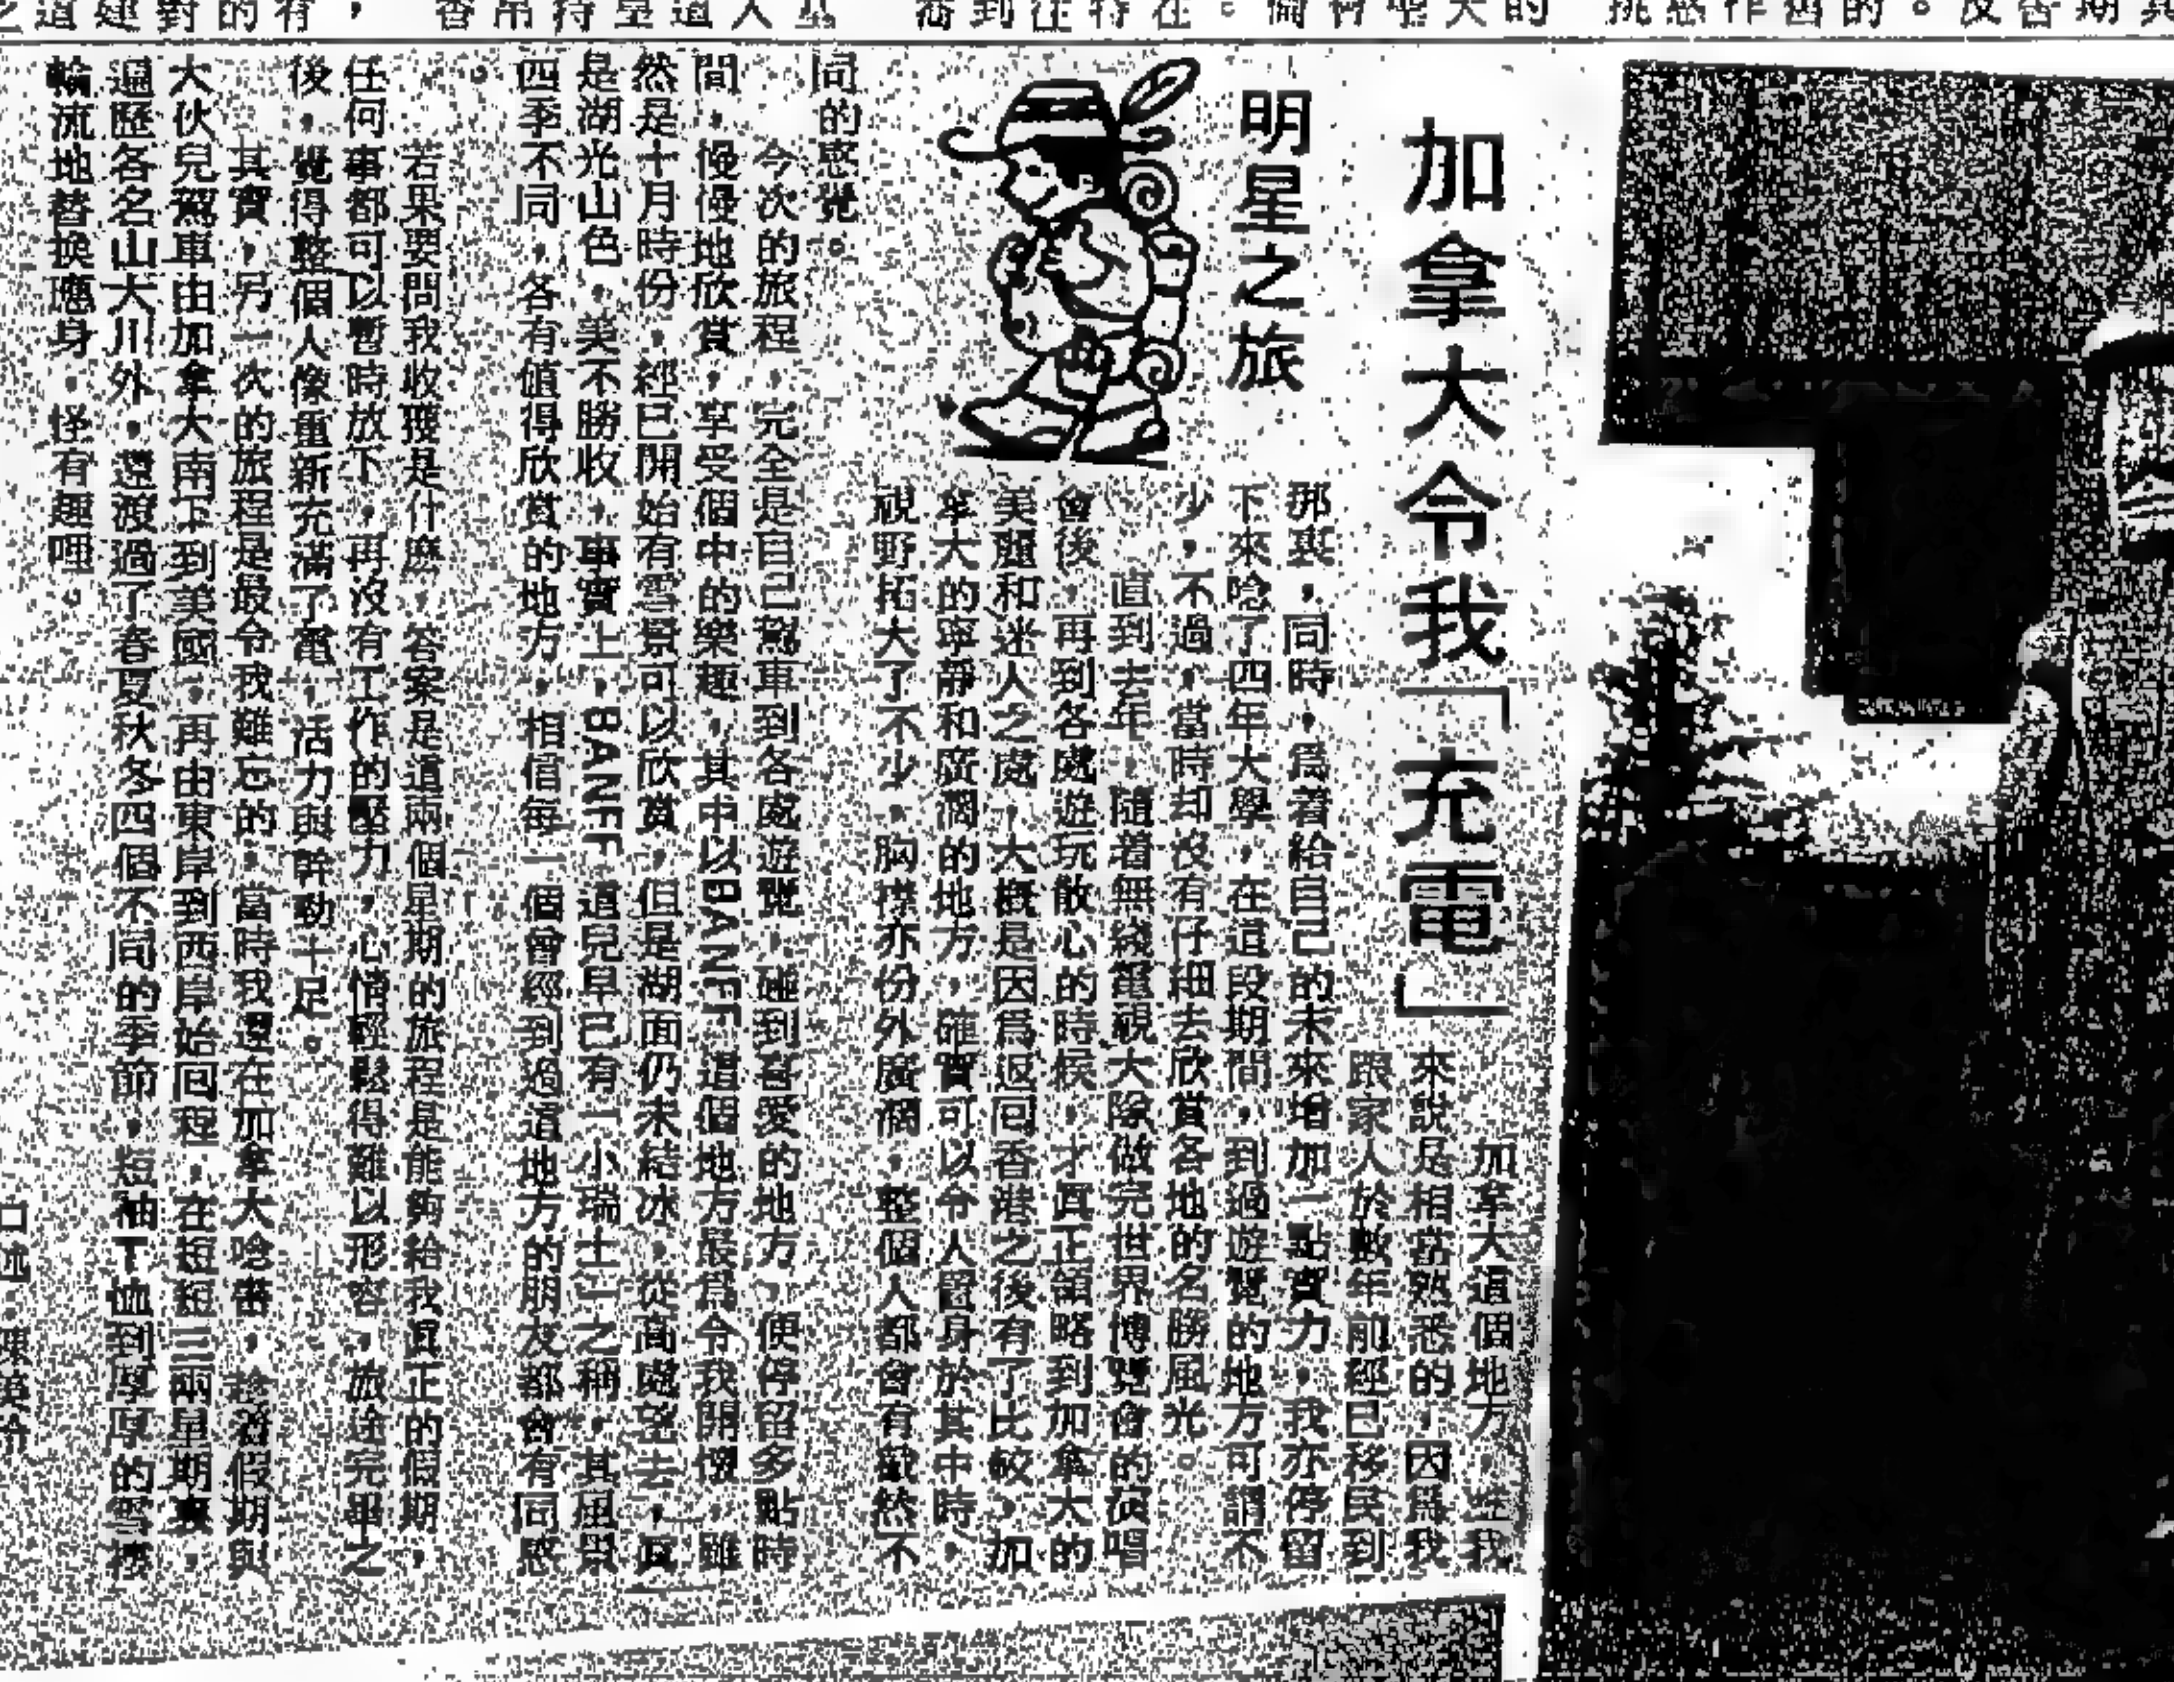 加拿大令我「充電」
明星之旅
加拿大這個地方,在我
來說是相當熟悉的,因爲我
跟家人於數年前經已移民到
那裏,同時,爲着給自己的未來增加一點實力,我亦停留
下來唸了四年大學,在這段期間,到過遊覽的地方可謂不
少,不過,當時却沒有仔細去欣賞各地的名勝風光。
直到去年,隨着無綫電視大隊做完世界博覽會的演唱
會後,再到各處遊玩散心的時候,才眞正領略到加拿大的
美麗和迷人之處,大概是因爲返回香港之後有了比較,加
拿大的寧靜和廣濶的地方,確實可以令人置身於其中時,
視野拓大了不少,胸襟亦份外廣濶,整個人都會有截然不
同的感覺。
今次的旅程,完全是自己駕車到各處遊覽,碰到喜愛的地方,便停留多點時
間,慢慢地欣賞,享受個中的樂趣,其中以BANFF這個地方最爲令我開懷,雖
然是十月時份,經已開始有雪景可以欣賞,但是湖面仍未結冰,從高處望去,眞
是湖光山色,美不勝收,事實上,BANFF這兒早已有「小瑞士」之稱,其風景
四季不同,各有値得欣賞的地方,相信每一個曾經到過這地方的朋友都會有同感
。
若果要問我收穫是什麼,答案是這兩個星期的旅程是能夠給我眞正的假期,
任何事都可以暫時放下,再沒有工作的壓力,心情輕鬆得難以形容,旅途完畢之
後,覺得整個人像重新充滿了電,活力與幹勁十足。
其實,另一次的旅程是最令我難忘的,當時我還在加拿大唸書,趁着假期與
大伙兒駕車由加拿大南下到美國,再由東岸到西岸始回程,在短短三兩星期裏,
遍歷各名山大川外,還渡過了春夏秋冬四個不同的季節,短袖T恤到厚厚的雪褸
輪流地替換應身,怪有趣哩。